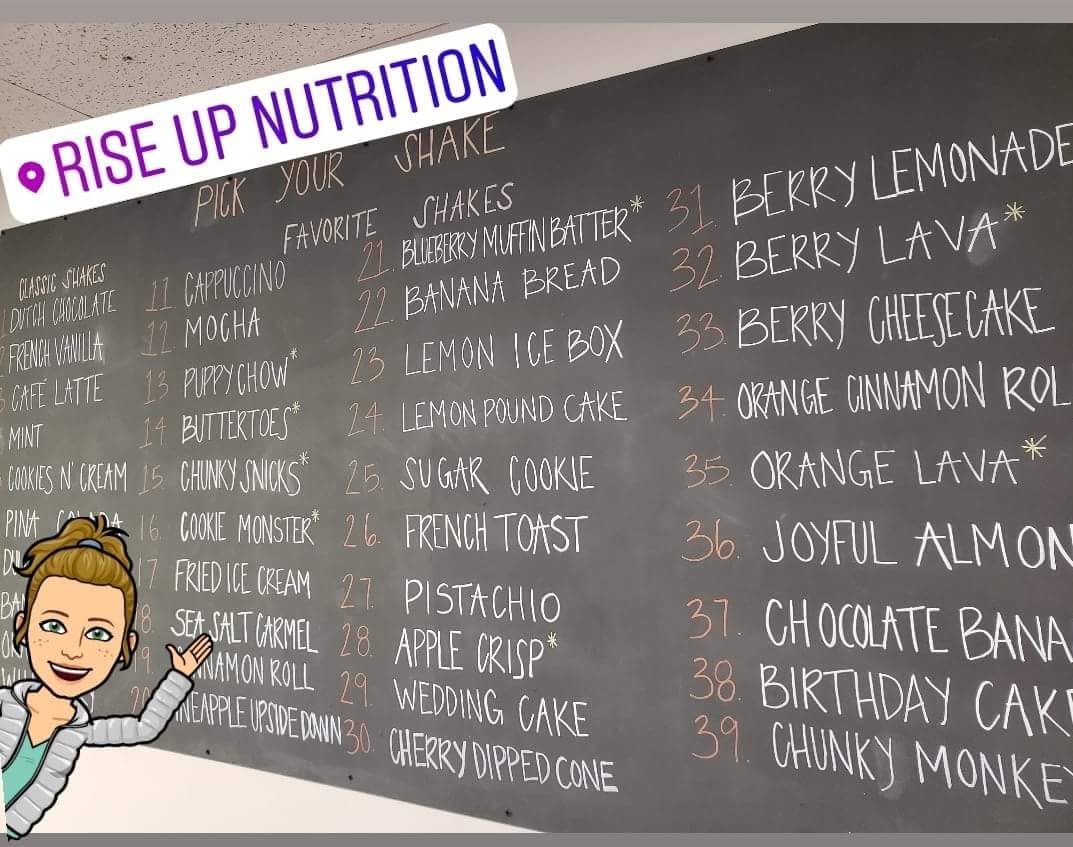 RISE UP NUTRITION
PICK YOUR SHAKE
FAVORITE SHAKES
CLASSIC SHAKES
DUTCH CHOCOLATE
FRENCH VANILLA
CAFÉ LATTE
MINT
COOKIES N' CREAM
PINA
11 CAPPUCCINO
12 MOCHA
13 PUPPY CHOW*
14 BUTTERTOES*
15 CHUNKY SNICKS*
16. COOKIE MONSTER*
17 FRIED ICE CREAM
8. SEA SALT CARMEL
9. NNAMON ROLL
20. NEAPPLE UPSIDE DOWN
21. BLUEBERRY MUFFIN BATTER*
22. BANANA BREAD
23 LEMON ICE BOX
24. LEMON POUND CAKE
25. SUGAR COOKIE
26. FRENCH TOAST
27. PISTACHIO
28. APPLE CRISP*
29. WEDDING CAKE
30. CHERRY DIPPED CONE
31. BERRY LEMONADE
32. BERRY LAVA*
33. BERRY CHEESECAKE
34. ORANGE CINNAMON ROL
35. ORANGE LAVA*
36. JOYFUL ALMON
37. CHOCOLATE BANA
38. BIRTHDAY CAKE
39. CHUNKY MONKEY